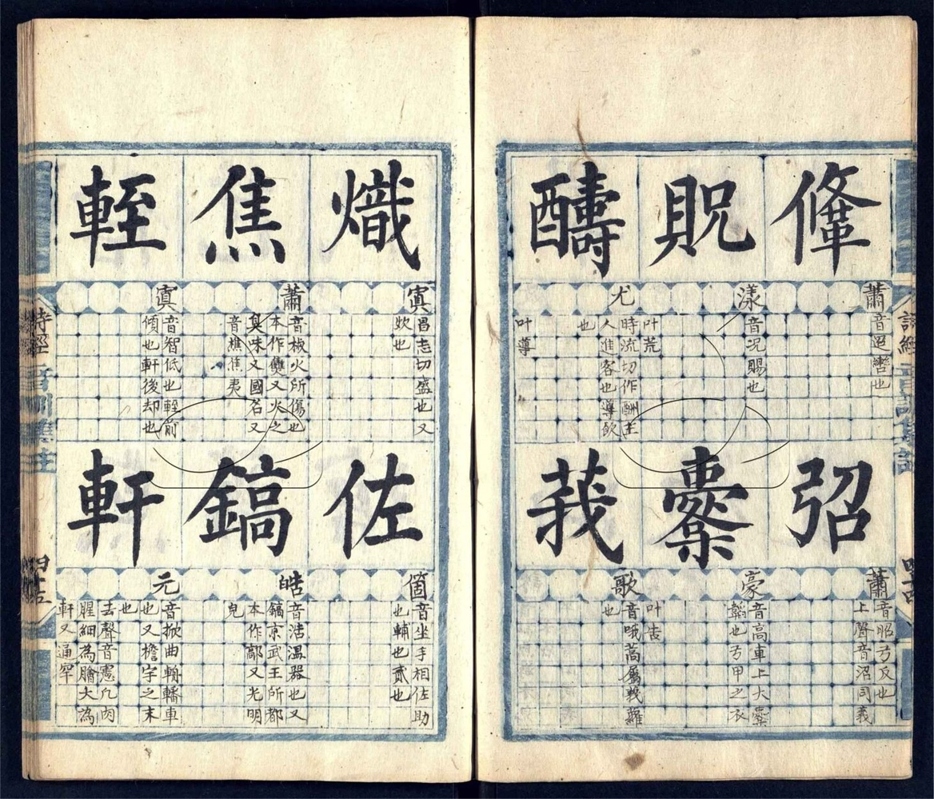 鞗
蕭
音迢轡也
弨
蕭
音昭弓反也
上聲音沼同義
貺
漾
音况賜也
櫜
豪
音高車上大櫜
韜也弓甲之衣
醻
尤
叶荒
時流切作酬主
人進客也導飲
也
叶導
莪
歌
叶
音哦蒿屬莪蘿
也
詩經
四十五
熾
寘
昌志切盛也又
欤也
佐
箇
音坐手相佐助
也輔也貳也
焦
蕭
音椒火所傷也
本作雧又火之
臭味又國名又
音樵焦夷
鎬
皓
音浩温器也又
鎬京武王所都
本作鄗又光明
皃
輊
寘
音智低也輊前
傾也軒後却也
軒
元
音掀曲輈轓車
也又檐宇之末
也
去聲音憲凡肉
腥細為膾大為
軒又通罕